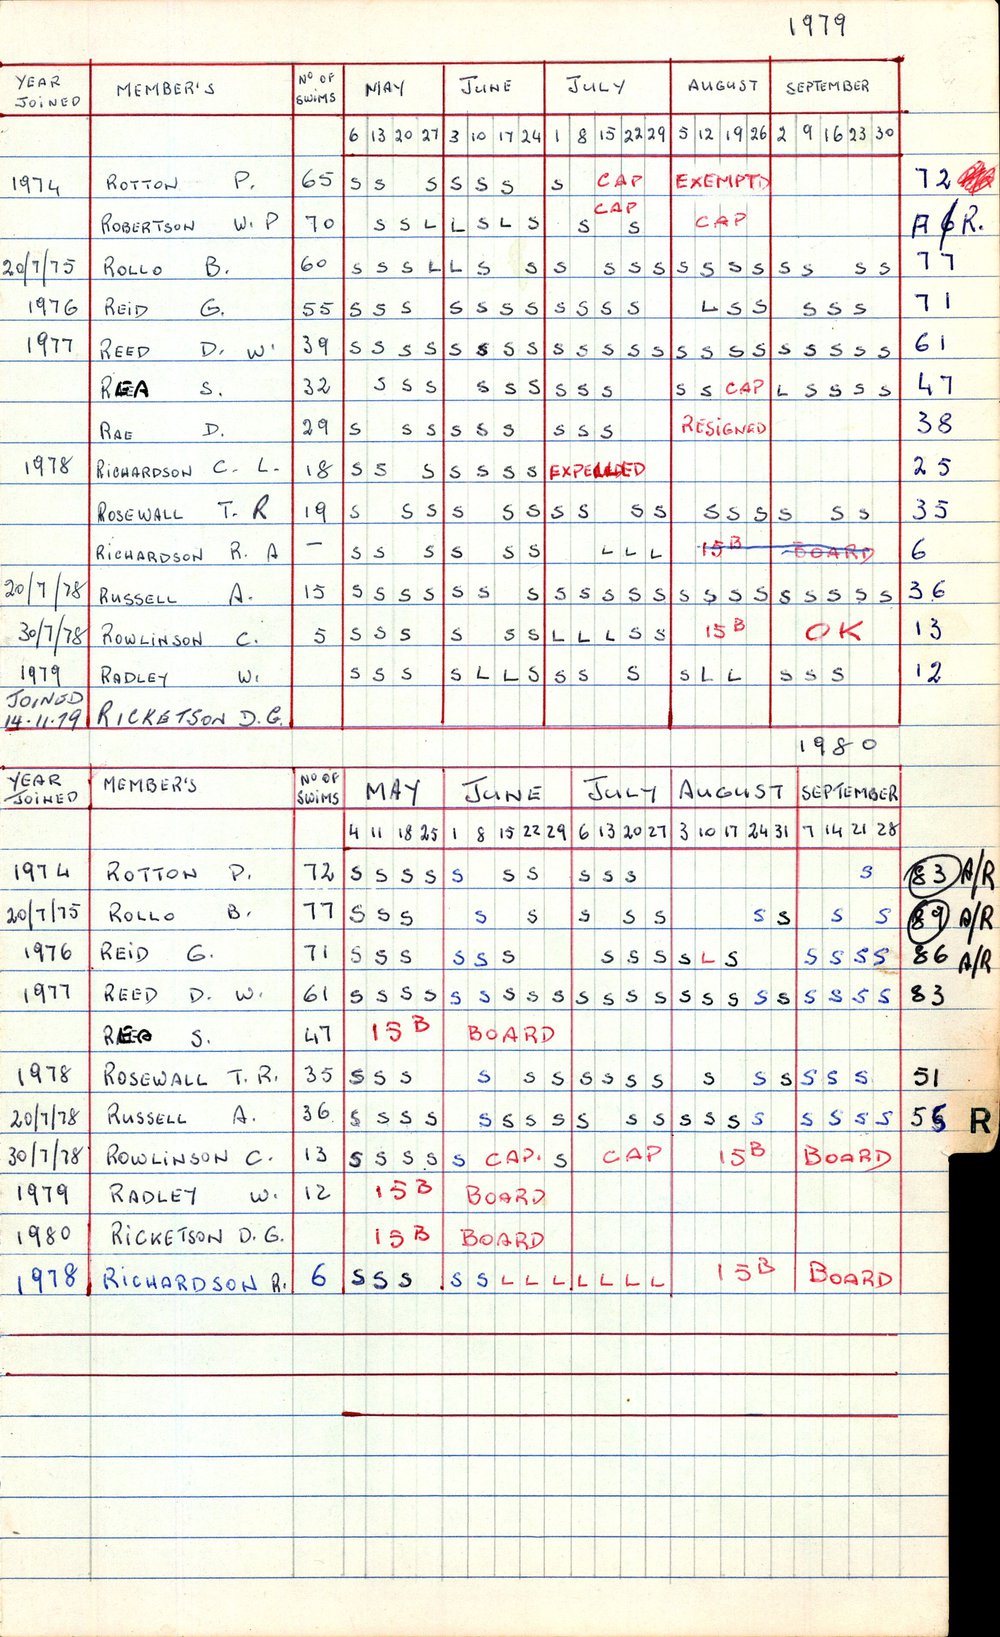 1979
YEAR JOINED MEMBER'S Nº OF SWIMS MAY JUNE JULY AUGUST SEPTEMBER
6 13 20 27 3 10 17 24 1 8 15 22 29 5 12 19 26 2 9 16 23 30
1974 ROTTON P. 65 S S S S S S S CAP EXEMPTD 72
ROBERTSON W. P 70 S S L L S L S S CAP S CAP A/R.
20/7/75 ROLLO B. 60 S S S L L S S S S S S S S S S S S S S 77
1976 REID G. 55 S S S S S S S S S S S L S S S S S 71
1977 REED D. W. 39 S S S S S S S S S S S S S S S S S S S S S S 61
REA S. 32 S S S S S S S S S S S CAP L S S S S 47
RAE D. 29 S S S S S S S S S RESIGNED 38
1978 RICHARDSON C. L. 18 S S S S S S S EXPELLED 25
ROSEWALL T. R 19 S S S S S S S S S S S S S S S S S 35
RICHARDSON R. A — S S S S S S L L L 15 B BOARD 6
20/7/78 RUSSELL A. 15 S S S S S S S S S S S S S S S S S S S S S 36
30/7/78 ROWLINSON C. 5 S S S S S S L L L S S 15 B OK 13
1979 RADLEY W. S S S S L L S S S S S L L S S S 12
JOINED
14.11.79 RICKETSON D.G.
1980
YEAR JOINED MEMBER'S Nº OF SWIMS MAY JUNE JULY AUGUST SEPTEMBER
4 11 18 25 1 8 15 22 29 6 13 20 27 3 10 17 24 31 7 14 21 28
1974 ROTTON P. 72 S S S S S S S S S S S 83 A/R
20/7/75 ROLLO B. 77 S S S S S S S S S S S S 89 A/R
1976 REID G. 71 S S S S S S S S S S S L S S S S S 86 A/R
1977 REED D. W. 61 S S S S S S S S S S S S S S S S S S S S S S 83
REA S. 47 15 B BOARD
1978 ROSEWALL T. R. 35 S S S S S S S S S S S S S S S S 51
20/7/78 RUSSELL A. 36 S S S S S S S S S S S S S S S S S S S S 55 R
30/7/78 ROWLINSON C. 13 S S S S S CAP. S CAP 15 B BOARD
1979 RADLEY W. 12 15 B BOARD
1980 RICKETSON D. G. 15 B BOARD
1978 RICHARDSON R. 6 S S S S S L L L L L L L 15 B BOARD